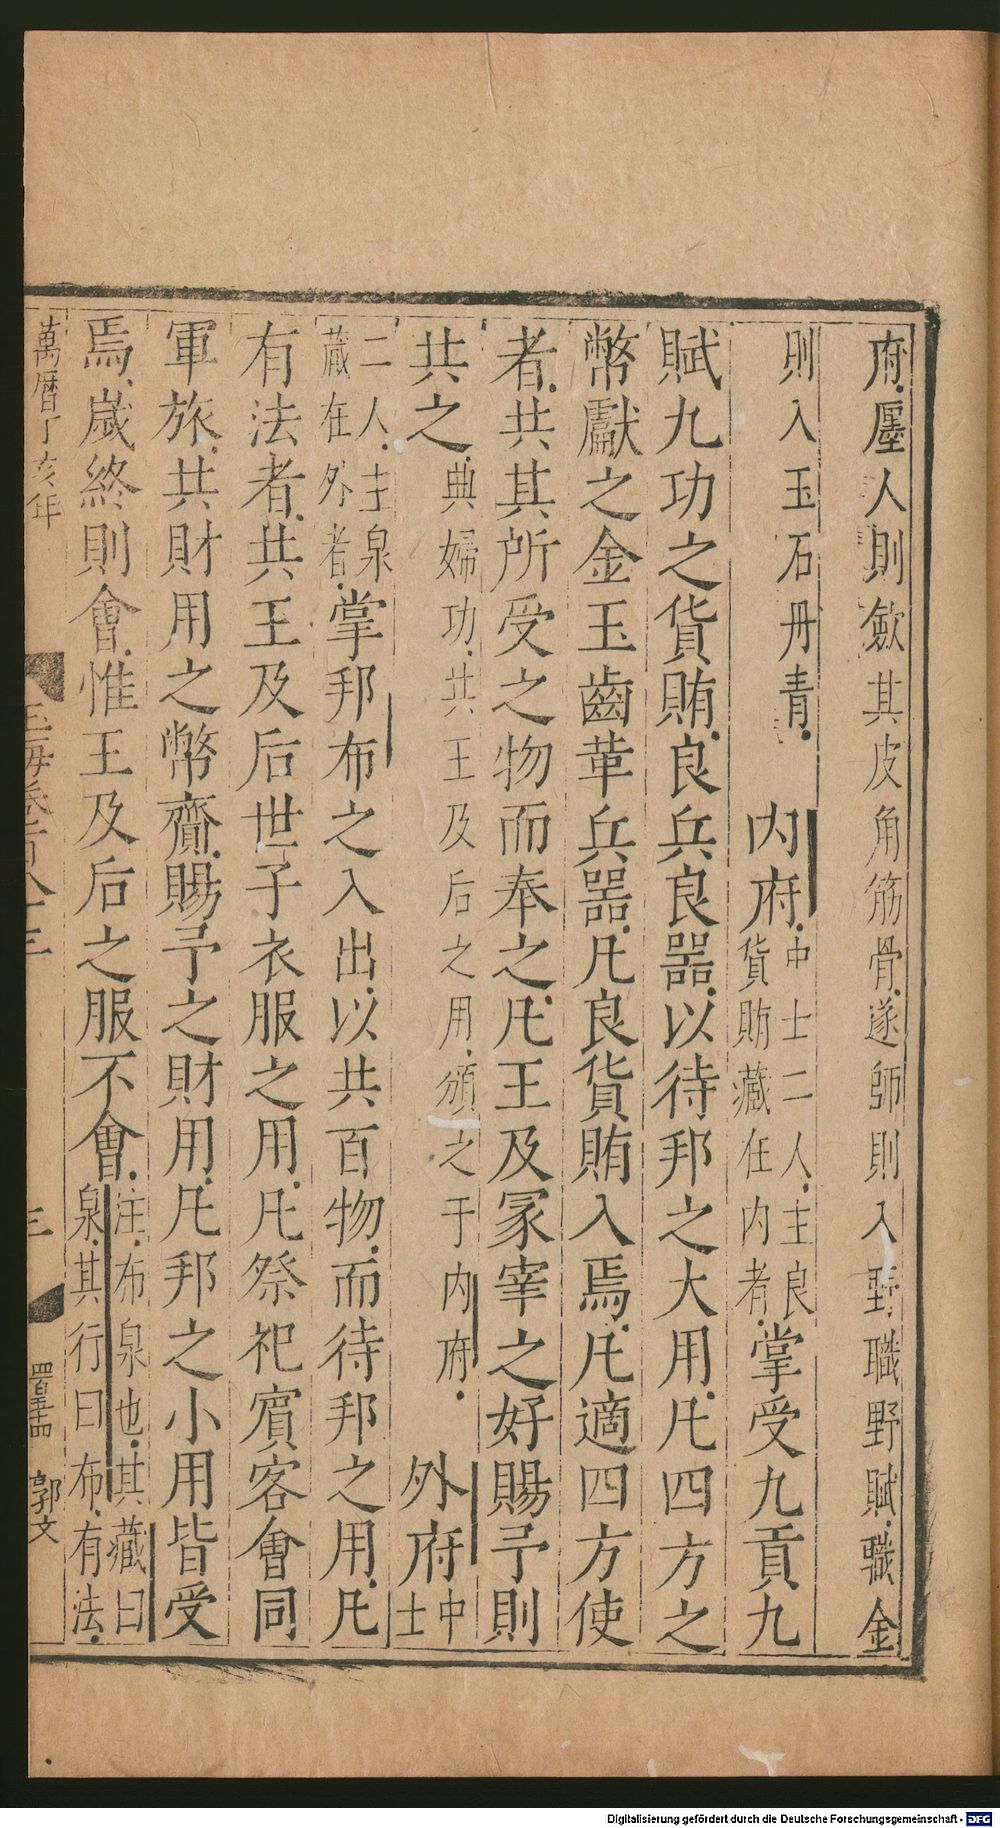 府廛人則斂其皮角筋骨遂師則入野職野賦職金
則入玉石丹青
內府
中士二人主良
貨賄藏在內者
掌受九貢九
賦九功之貨賄良兵良器以待邦之大用凡四方之
幣獻之金玉齒革兵器凡良貨賄入焉凡適四方使
者共其所受之物而奉之凡王及冢宰之好賜予則
共之
典婦功共王及后之用頒之于內府
外府
中
士
二人主泉
藏在外者
掌邦布之入出以共百物而待邦之用凡
有法者共王及后世子衣服之用凡祭祀賓客會同
軍旅共財用之幣齎賜予之財用凡邦之小用皆受
焉歲終則會惟王及后之服不會
注布泉也其藏曰
泉其行曰布有法
萬曆丁亥年
玉海卷百八十三
三
四百五十四
郭文
Digitalisierung gefördert durch die Deutsche Forschungsgemeinschaft - DFG